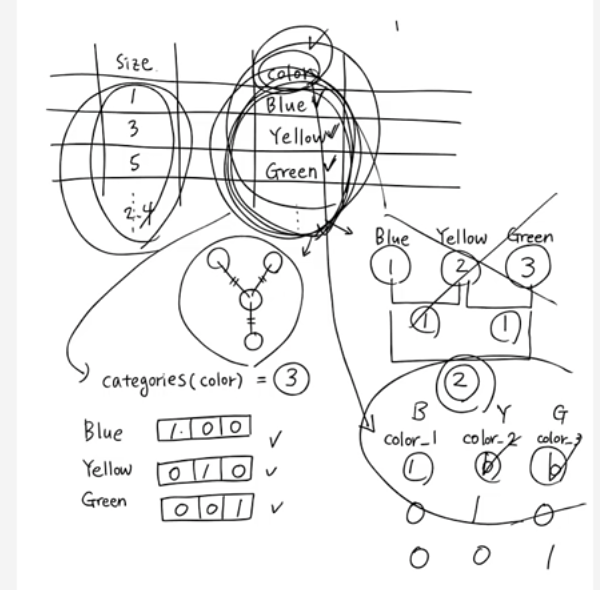 Size
color
1
Blue
3
Yellow
5
Green
2.4
Blue Yellow Green
1 2 3
1 1
2
categories(color) = 3
Blue 1 0 0
Yellow 0 1 0
Green 0 0 1
B Y G
color_1 color_2 color_3
1 0 0
0 1 0
0 0 1